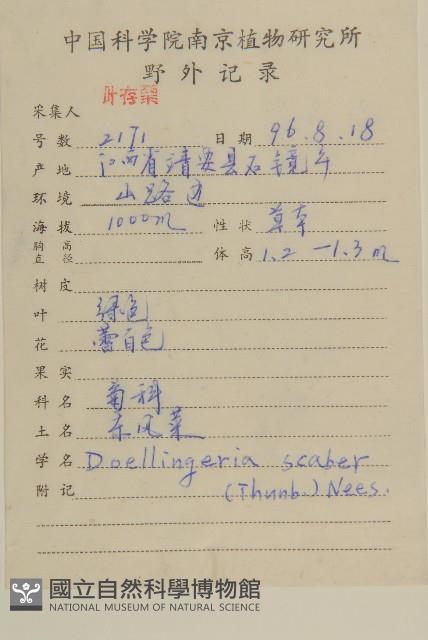 中国科学院南京植物研究所
野外记录
采集人 叶存粟
号数 2171 日期 96.8.18
产地 江西省靖安县石镜
环境 山路边
海拔 1000m 性状 草本
胸高直径 体高 1.2-1.3m
树皮
叶 绿色
花 蕾白色
果实
科名 菊科
土名 东风菜
学名 Doellingeria scaber
附记 (Thunb.) Nees.
國立自然科學博物館
NATIONAL MUSEUM OF NATURAL SCIENCE